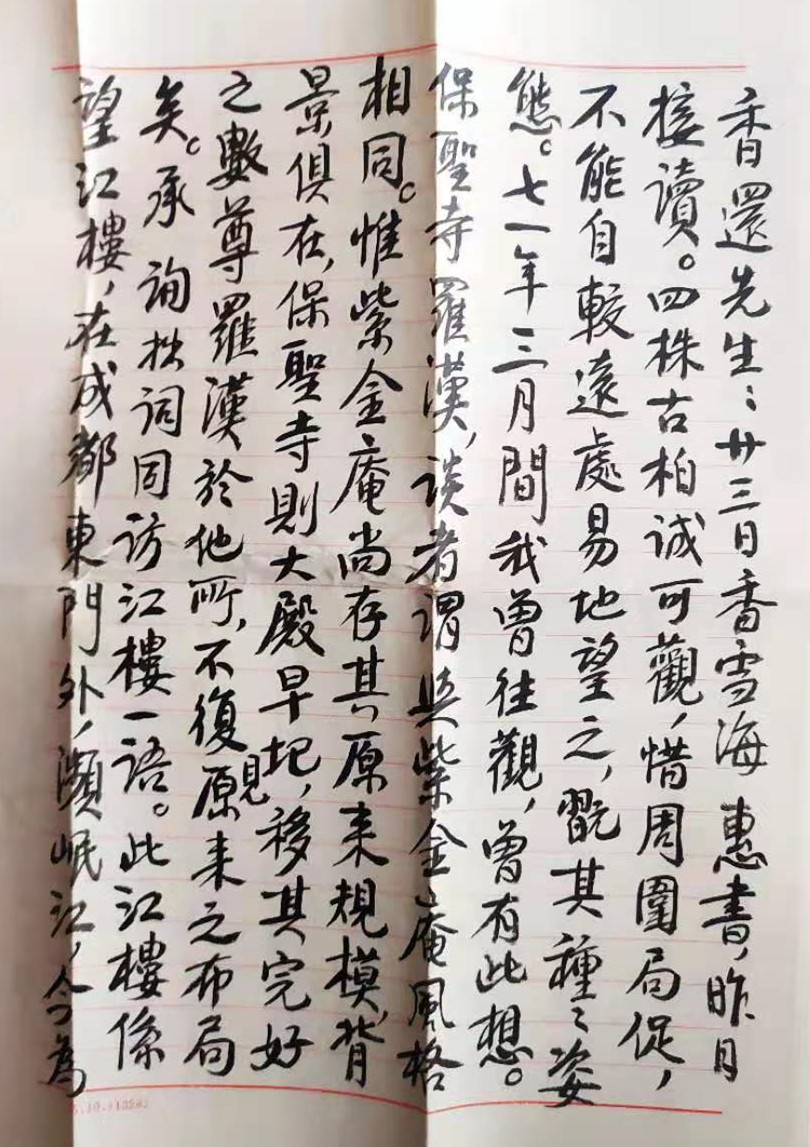 香還先生：廿三日香雪海 惠書，昨日
接讀。四株古柏誠可觀，惜周圍局促，
不能自較遠處易地望之，翫其種〻姿
態。七一年三月間我曾往觀，曾有此想。
保聖寺羅漢，談者謂與紫金庵風格
相同。惟紫金庵尚存其原來規模，背
景俱在，保聖寺則大殿早圮，移其完好
之數尊羅漢於他所，不復見原來之布局
矣。承 詢拙詞同訪江樓一語。此江樓係
望江樓，在成都東門外，瀕岷江，今為